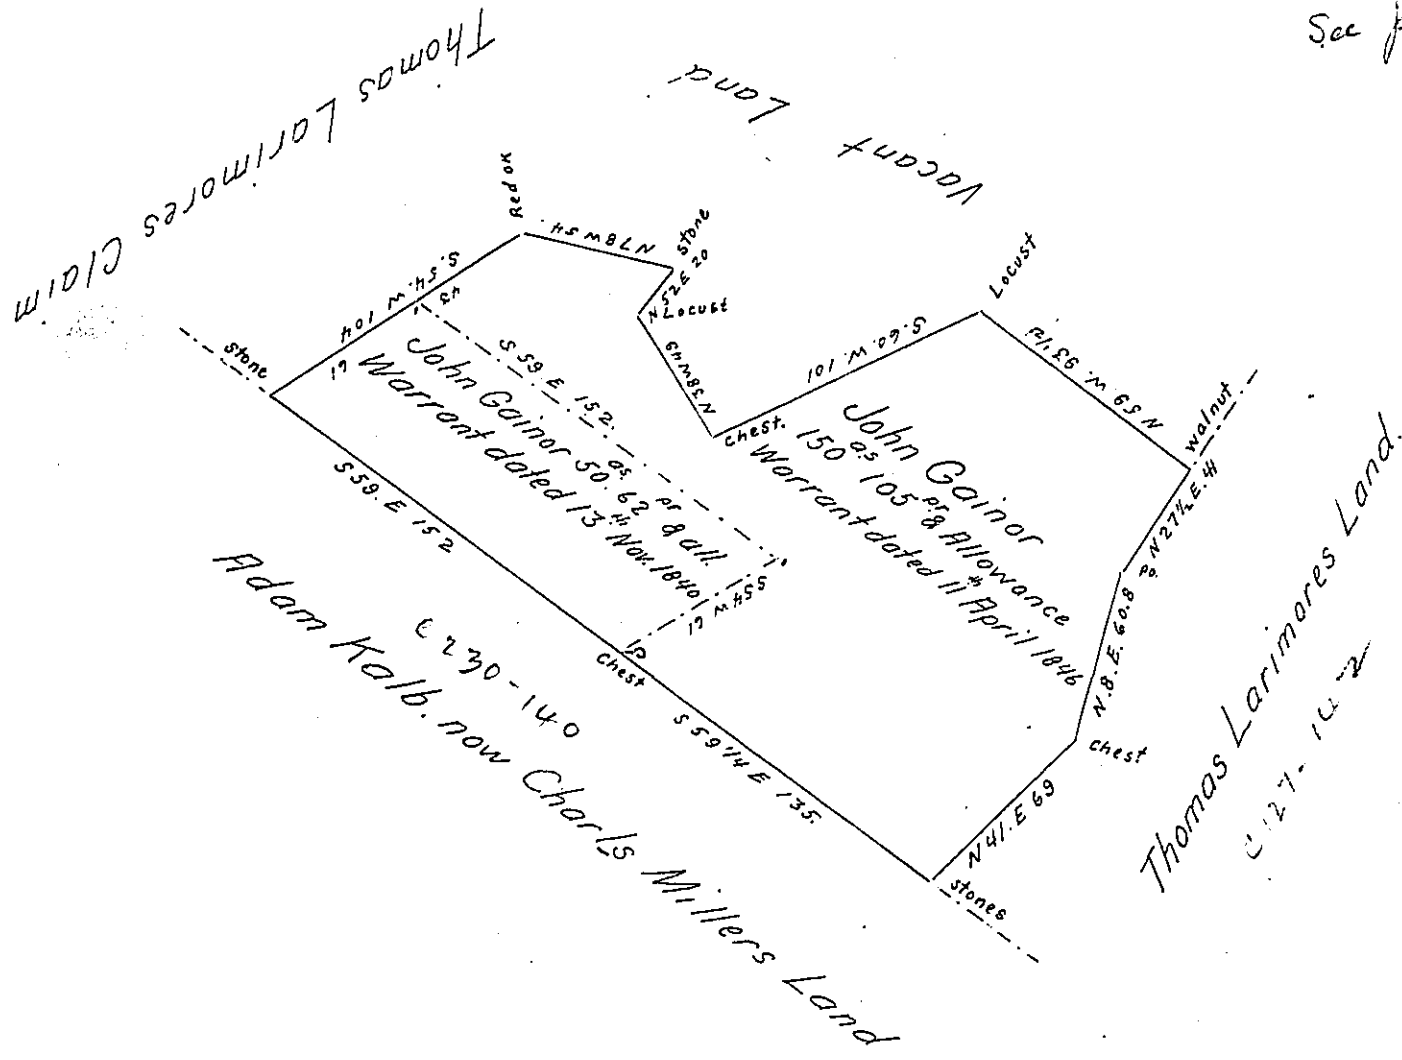 See
Thomas Larimores Claim
Vacant Land
Red OK
N 78 W 54.
stone
N 52 E 20
Locust
N 38 W 49
Chest.
S. 60. W. 101
Locust
N 59. W. 93 1/2
Walnut
N 27 1/2 E. 41
Po.
N. 8. E. 60.8
Chest
N 41. E 69
stones
S 59 1/4 E 135.
Chest
S 59. E 152
stone
S. 54. W 104
43
61
S 59 E 152.
S 54 W 61
John Gainor 50 as. 62 pr & all.
Warrant dated 13th Nov. 1840
John Gainor
150 as 105 pr & Allowance
Warrant dated 11th April 1846
C 230-140
Adam Kalb. now Charls Millers Land
Thomas Larimores Land.
C 127-142